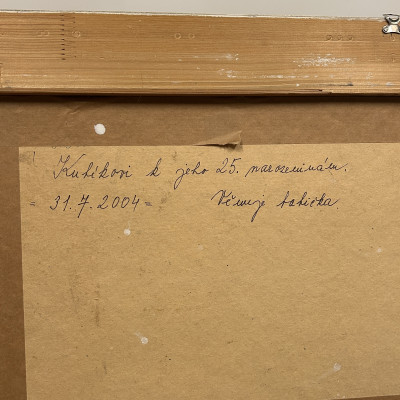 Kubíkovi k jeho 25. narozeninám.
= 31.7.2004 = Věnuje babička.